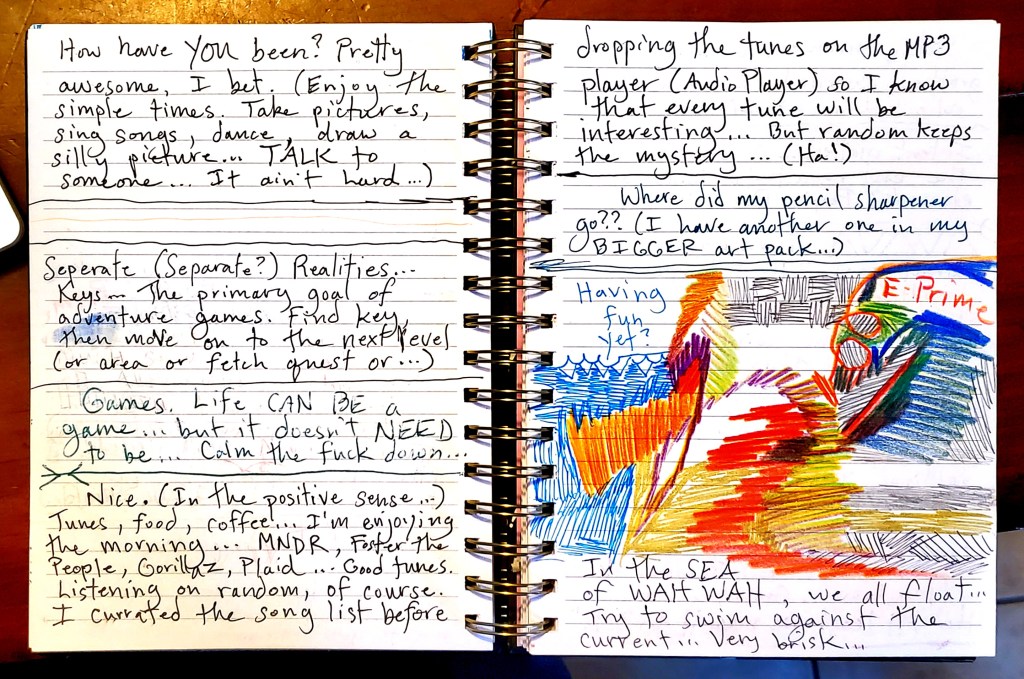 How have YOU been? Pretty
awesome, I bet. (Enjoy the
simple times. Take pictures,
sing songs, dance, draw a
silly picture... TALK to
someone... It ain't hard...)
Seperate (Separate?) Realities...
Keys... The primary goal of
adventure games. Find key,
then move on to the next level
(or area or fetch quest or...)
Games. Life CAN BE a
game... but it doesn't NEED
to be... Calm the fuck down...
Nice. (In the positive sense...)
Tunes, food, coffee... I'm enjoying
the morning... MNDR, Foster the
People, Gorillaz, Plaid... Good tunes.
Listening on random, of course.
I currated the song list before
dropping the tunes on the MP3
player (Audio Player) so I know
that every tune will be
interesting... But random keeps
the mystery... (Ha!)
Where did my pencil sharpener
go?? (I have another one in my
BIGGER art pack...)
Having
fun
yet?
E-Prime
In the SEA
of WAH WAH, we all float...
Try to swim against the
current... Very brisk...